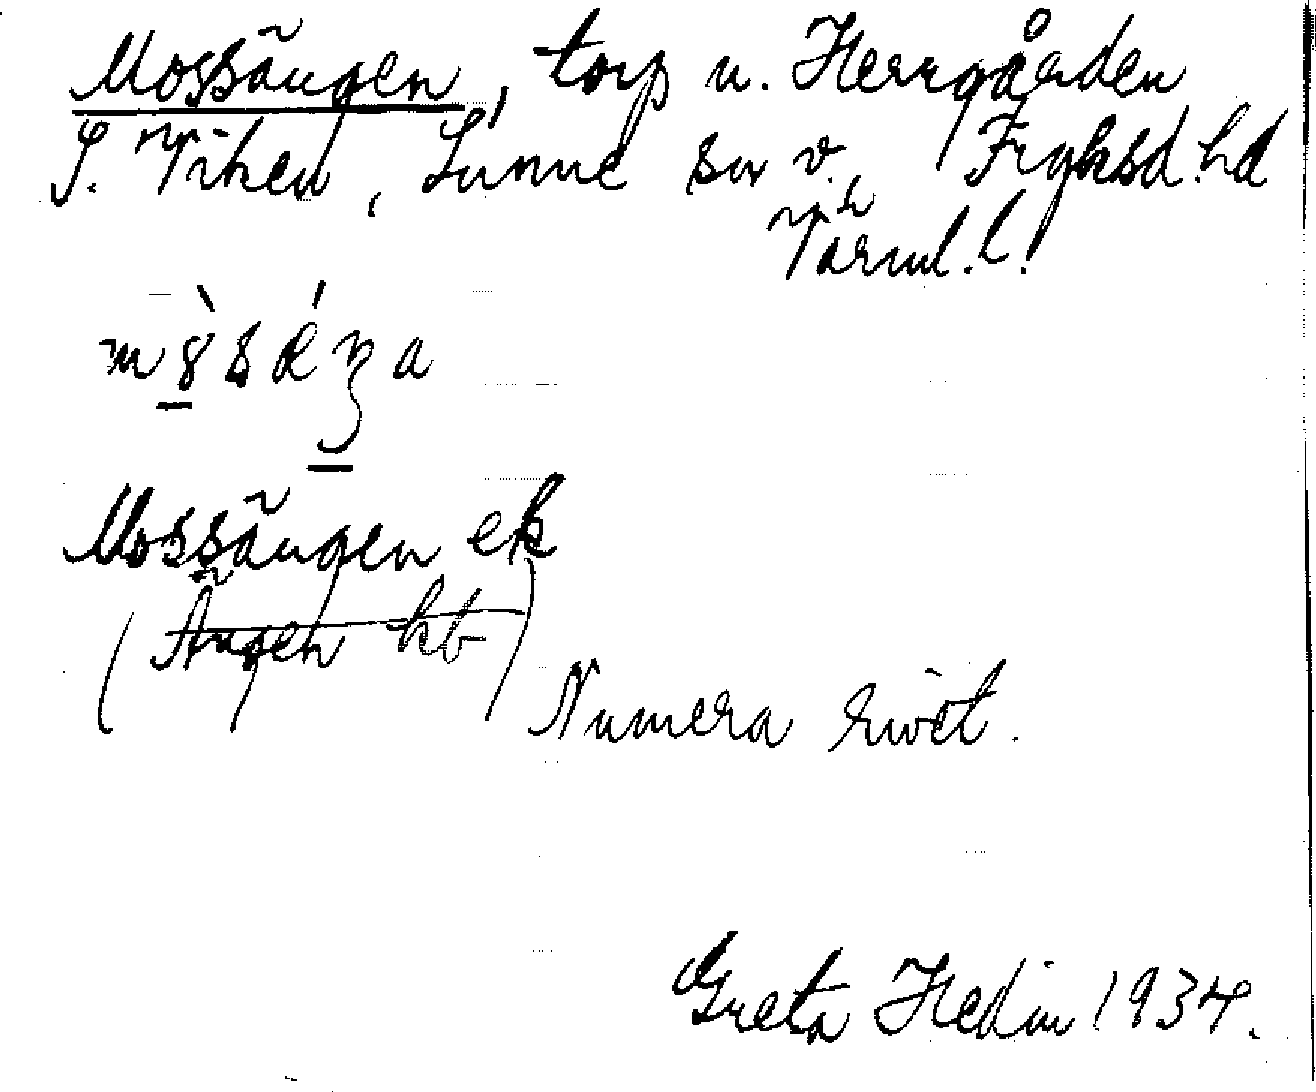 Mossängen, torp u. Herrgården
S. Viken, Sunne sn v. Fryksd. hd
Värml. l.
Mossängen ek
(Ängen kb)
Numera rivet.
Greta Hedin 1934.